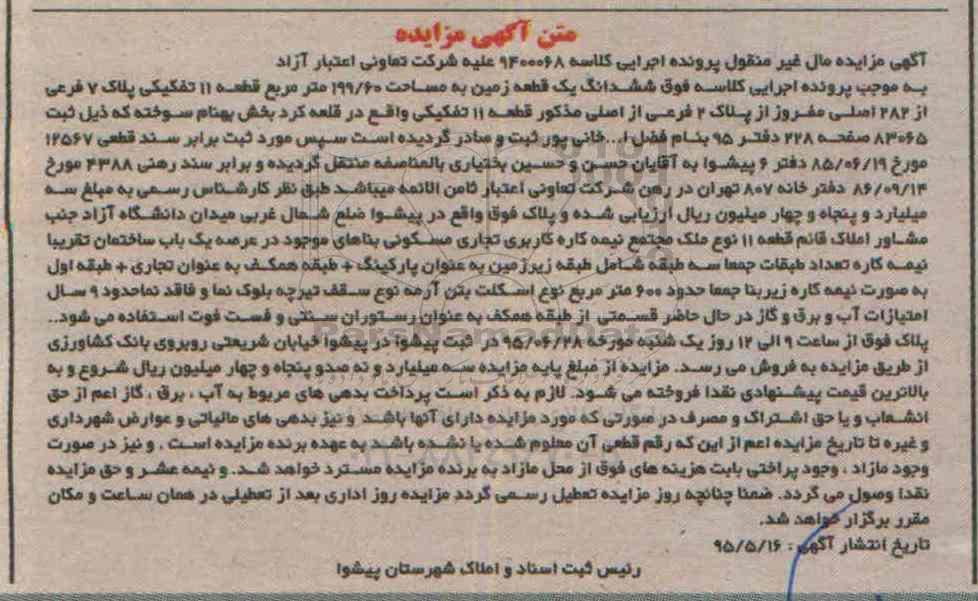 متن آگهی مزایده
آگهی مزایده مال غیر منقول پرونده اجرایی کلاسه ۹۴۰۰۰۶۸ علیه شرکت تعاونی اعتبار آزاد
به موجب پرونده اجرایی کلاسه فوق ششدانگ یک قطعه زمین به مساحت ۱۹۹/۶۰ متر مربع قطعه ۱۱ تفکیکی پلاک ۷ فرعی
از ۲۸۲ اصلی مفروز از پلاک ۲ فرعی از اصلی مذکور قطعه ۱۱ تفکیکی واقع در قلعه کرد بخش بهنام سوخته که ذیل ثبت
۸۳۰۶۵ صفحه ۲۲۸ دفتر ۹۵ بنام فضل ا...خانی پور ثبت و صادر گردیده است سپس مورد ثبت برابر سند قطعی ۱۲۵۶۷
مورخ ۸۵/۰۶/۱۹ دفتر ۶ پیشوا به آقایان حسن و حسین بختیاری بالمناصفه منتقل گردیده و برابر سند رهنی ۴۳۸۸ مورخ
۸۶/۰۹/۱۴ دفتر خانه ۸۰۷ تهران در رهن شرکت تعاونی اعتبار ثامن الائمه میباشد طبق نظر کارشناس رسمی به مبلغ سه
میلیارد و پنجاه و چهار میلیون ریال ارزیابی شده و پلاک فوق واقع در پیشوا ضلع شمال غربی میدان دانشگاه آزاد جنب
مشاور املاک قائم قطعه ۱۱ نوع ملک مجتمع نیمه کاره کاربری تجاری مسکونی بناهای موجود در عرصه یک باب ساختمان تقریبا
نیمه کاره تعداد طبقات جمعا سه طبقه شامل طبقه زیرزمین به عنوان پارکینگ + طبقه همکف به عنوان تجاری + طبقه اول
به صورت نیمه کاره زیربنا جمعا حدود ۶۰۰ متر مربع نوع اسکلت بتن آرمه نوع سقف تیرچه بلوک نما و فاقد نماحدود ۹ سال
امتیازات آب و برق و گاز در حال حاضر قسمتی از طبقه همکف به عنوان رستوران سنتی و فست فوت استفاده می شود..
پلاک فوق از ساعت ۹ الی ۱۲ روز یک شنبه مورخه ۹۵/۰۶/۲۸ در ثبت پیشوا در پیشوا خیابان شریعتی روبروی بانک کشاورزی
از طریق مزایده به فروش می رسد. مزایده از مبلغ پایه مزایده سه میلیارد و نه صدو پنجاه و چهار میلیون ریال شروع و به
بالاترین قیمت پیشنهادی نقدا فروخته می شود. لازم به ذکر است پرداخت بدهی های مربوط به آب ، برق ، گاز اعم از حق
انشعاب و یا حق اشتراک و مصرف در صورتی که مورد مزایده دارای آنها باشد و نیز بدهی های مالیاتی و عوارض شهرداری
و غیره تا تاریخ مزایده اعم از این که رقم قطعی آن معلوم شده یا نشده باشد به عهده برنده مزایده است . و نیز در صورت
وجود مازاد ، وجود پراختی بابت هزینه های فوق از محل مازاد به برنده مزایده مسترد خواهد شد. و نیمه عشر و حق مزایده
نقدا وصول می گردد. ضمنا چنانچه روز مزایده تعطیل رسمی گردد مزایده روز اداری بعد از تعطیلی در همان ساعت و مکان
مقرر برگزار خواهد شد.
تاریخ انتشار آگهی : ۹۵/۵/۱۶
رئیس ثبت اسناد و املاک شهرستان پیشوا
ParsNamadData